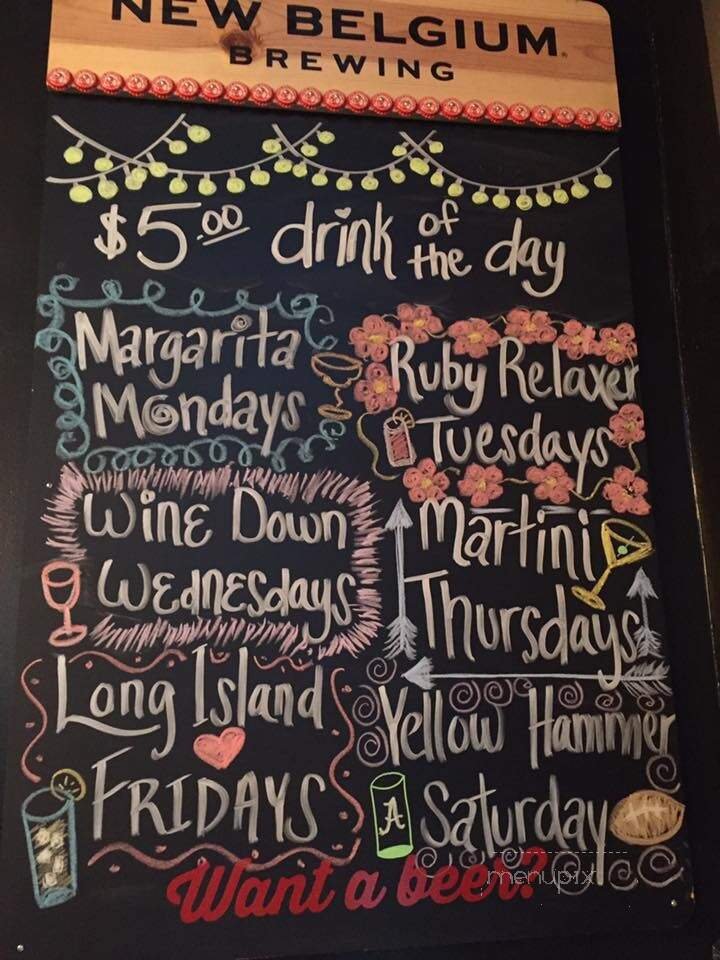 NEW BELGIUM
BREWING
$5.00 drink of the day
Margarita
Mondays
Ruby Relaxer
Tuesdays
Wine Down
Wednesdays
Martini
Thursdays
Long Island
FRIDAYS
Yellow Hammer
A
Saturday
Want a beer?
menupix